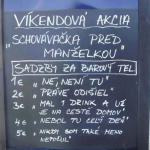 VÍKENDOVÁ AKCIA
„SCHOVÁVAČKA PRED
MANŽELKOU"
SADZBY ZA BAROVÝ TEL.
1€ „NE, NENI TU"
2€ „PRÁVE ODIŠIEL"
3€ „MAL 1 DRINK A UŽ
JE NA CESTE DOMOV"
4€ „NEBOL TU CELÝ DEŇ"
5€ „NIKDY SOM TAKÉ MENO
NEPOČUL"